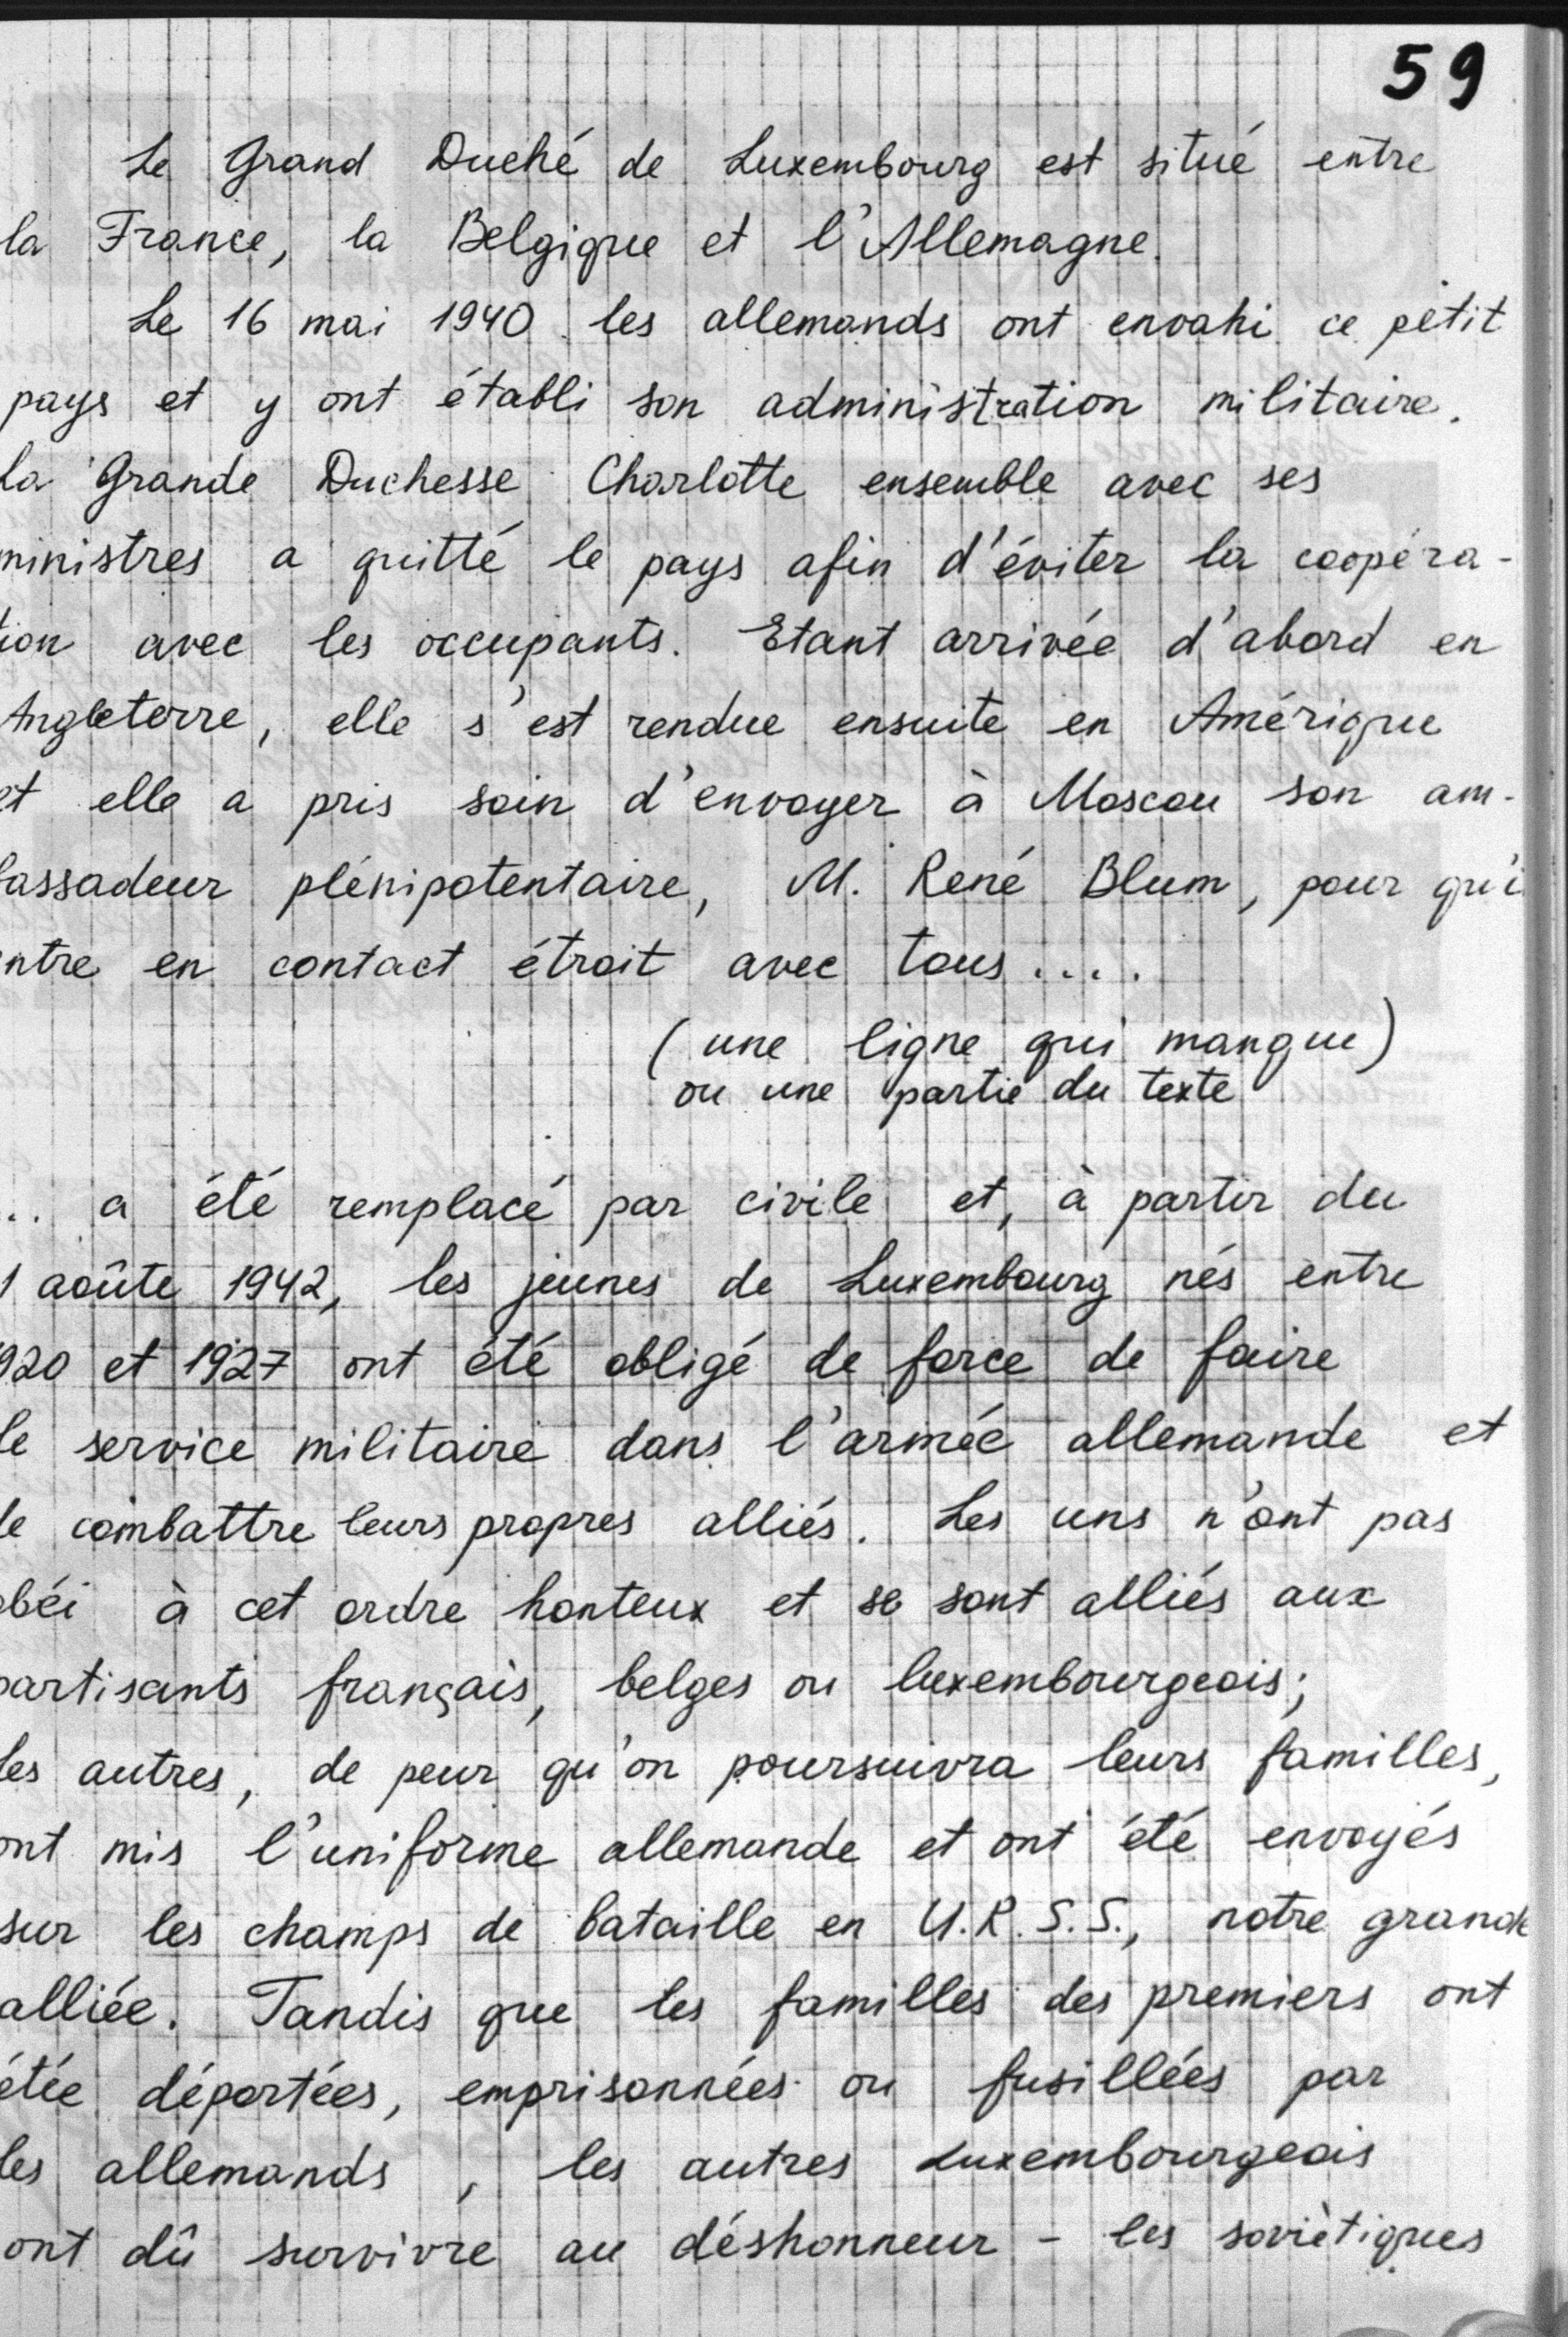 59
Le Grand Duché de Luxembourg est situé entre
la France, la Belgique et l'Allemagne.
Le 16 mai 1940 les allemands ont envahi ce petit
pays et y ont établi son administration militaire.
La Grande Duchesse Charlotte ensemble avec ses
ministres a quitté le pays afin d'éviter la coopéra-
tion avec les occupants. Etant arrivée d'abord en
Angleterre, elle s'est rendue ensuite en Amérique
et elle a pris soin d'envoyer à Moscou son am-
bassadeur plénipotentaire, M. René Blum, pour qu'i
ntre en contact étroit avec tous....
(une ligne qui manque)
ou une partie du texte
... a été remplacé par civile et, à partir du
1 aoûte 1942, les jeunes de Luxembourg nés entre
920 et 1927 ont été obligé de force de faire
le service militaire dans l'armée allemande et
de combattre leurs propres alliés. Les uns n'ont pas
obéi à cet ordre honteux et se sont alliés aux
partisants français, belges ou luxembourgeois;
les autres, de peur qu'on poursuivra leurs familles,
ont mis l'uniforme allemande et ont été envoyés
sur les champs de bataille en U.R.S.S., notre grande
alliée. Tandis que les familles des premiers ont
étée déportées, emprisonnées ou fusillées par
les allemands, les autres Luxembourgeois
ont dû survivre au déshonneur - les soviètiques